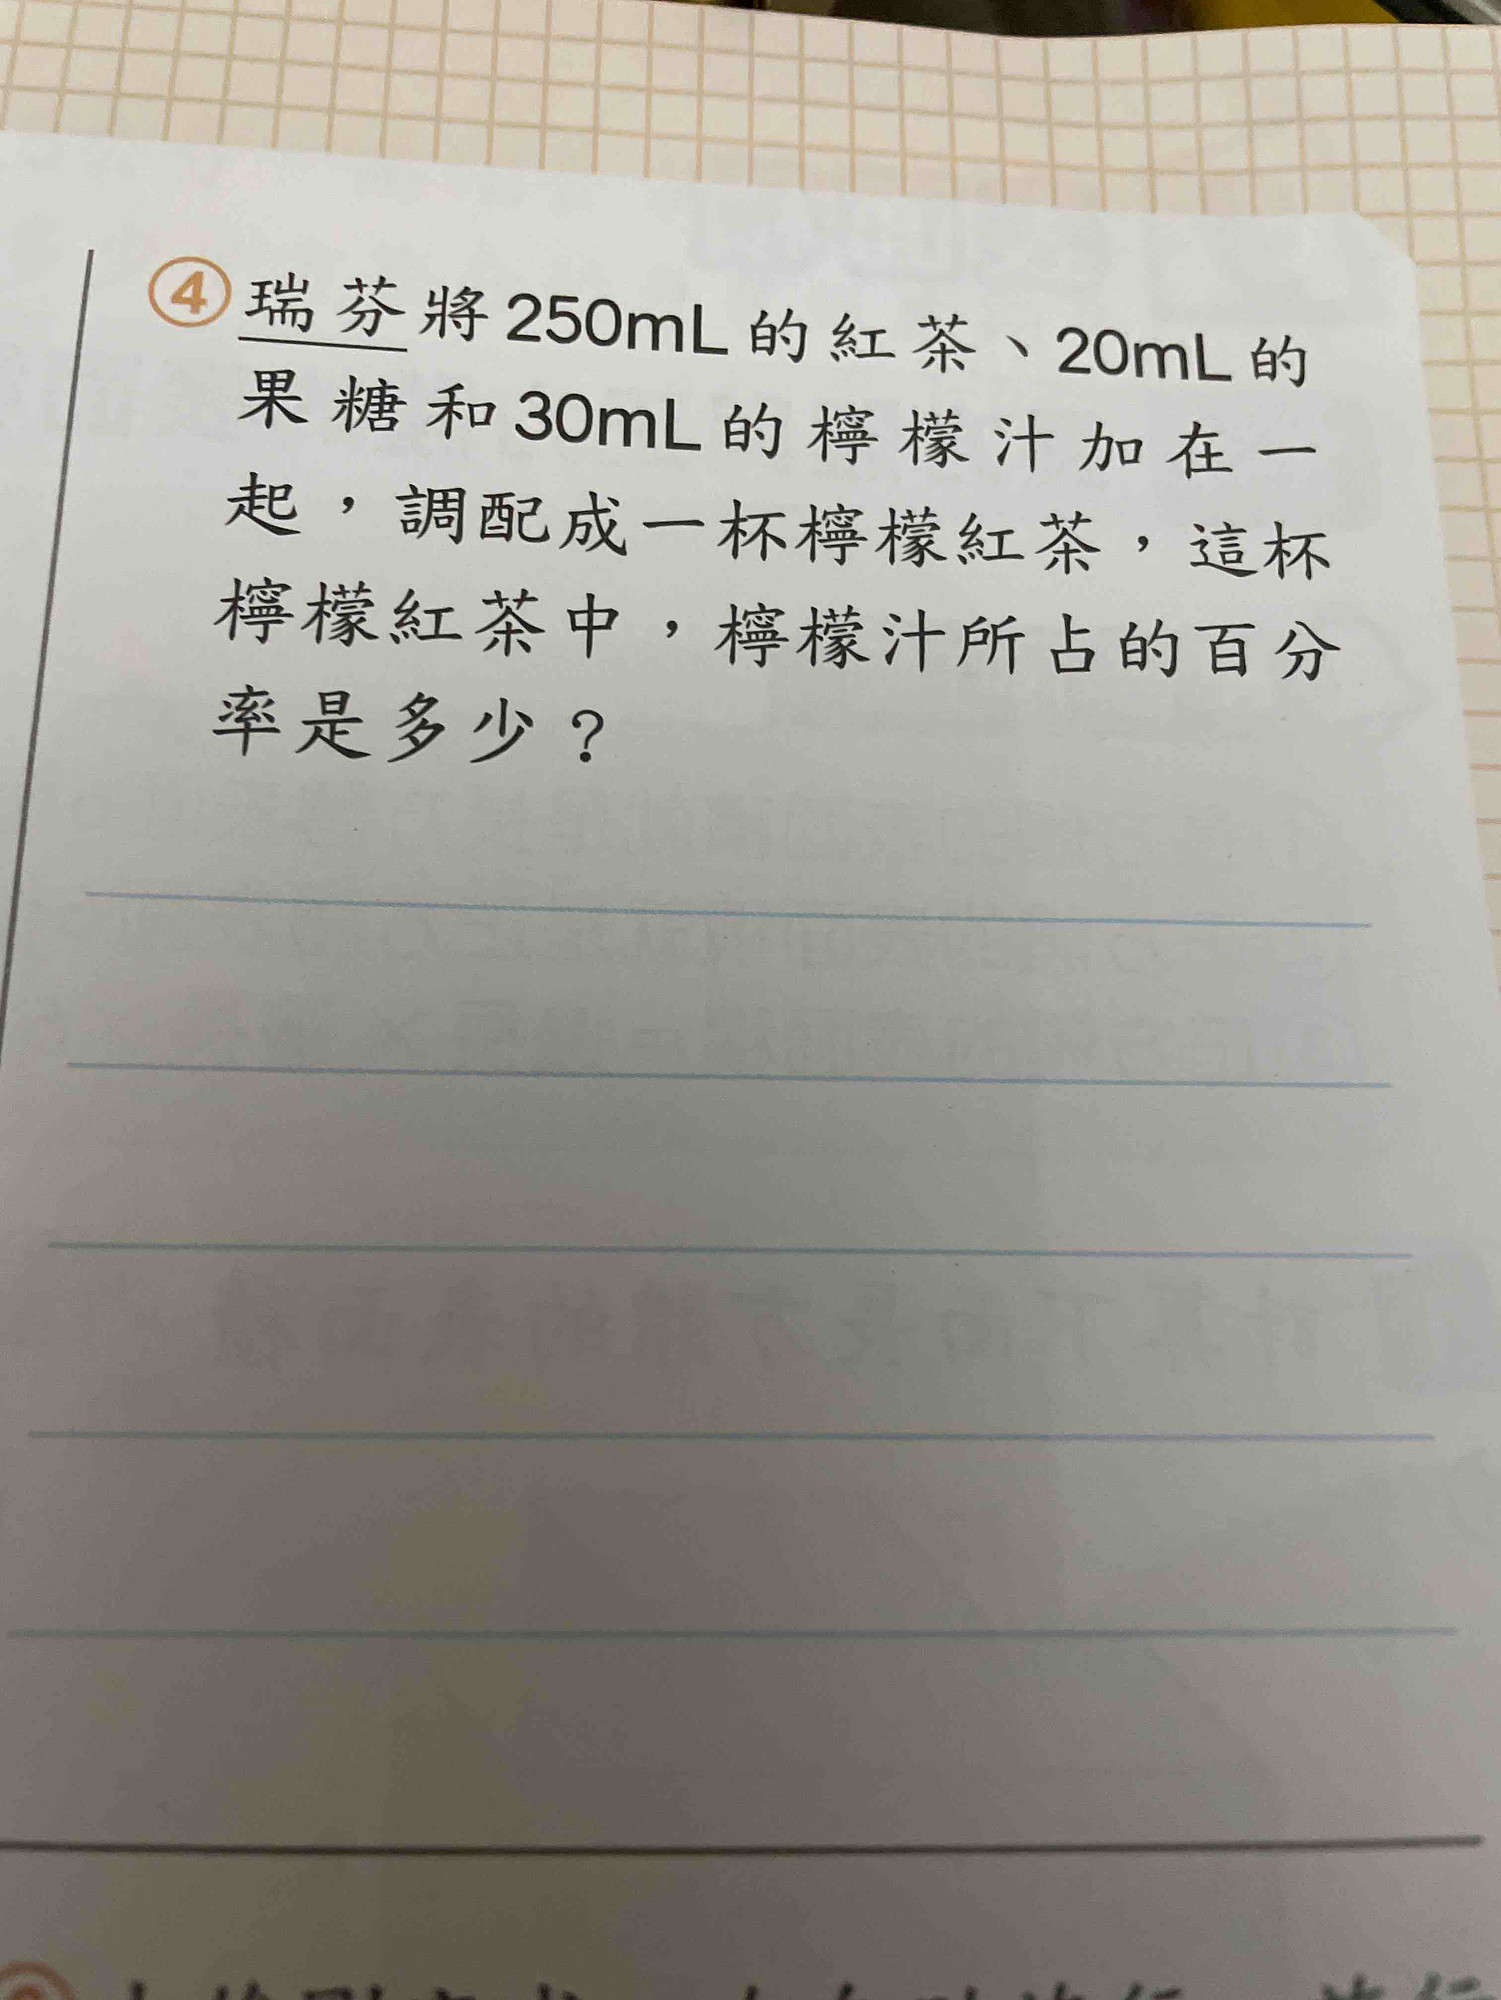 ④瑞芬將250mL的紅茶、20mL的
果糖和30mL的檸檬汁加在一
起，調配成一杯檸檬紅茶，這杯
檸檬紅茶中，檸檬汁所占的百分
率是多少？